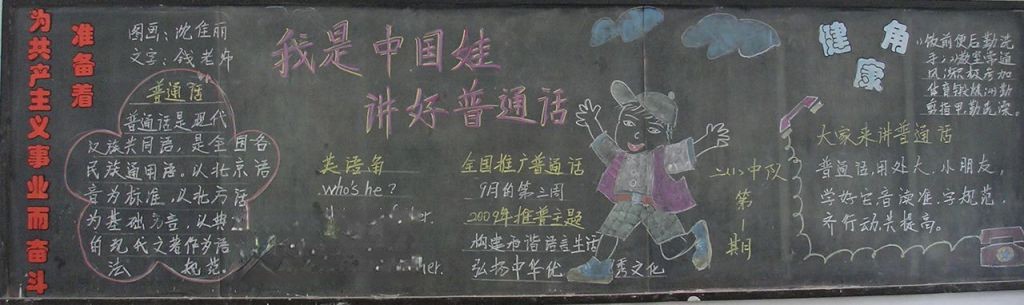 为共产主义事业而奋斗
准备着
图画：沈佳丽
文字：钱老师
普通话
普通话是现代
汉族共同语，是全国各
民族通用语。以北京语
音为标准，以北方话
为基础方言，以典
的现代文著作为语
法 规范。
我是中国娃
讲好普通话
英语角
who's he?
er.
er.
全国推广普通话
9月的第三周
2009年推普主题
构建和谐语言生活
弘扬中华优 秀文化
二(2)中队
第1期
健康角
饭前便后勤洗
手，教室常通
风，积极参加
体育锻炼，
剪指甲勤洗澡。
大家来讲普通话
普通话，用处大，小朋友，
学好它，音读准，字规范，
齐行动共提高。